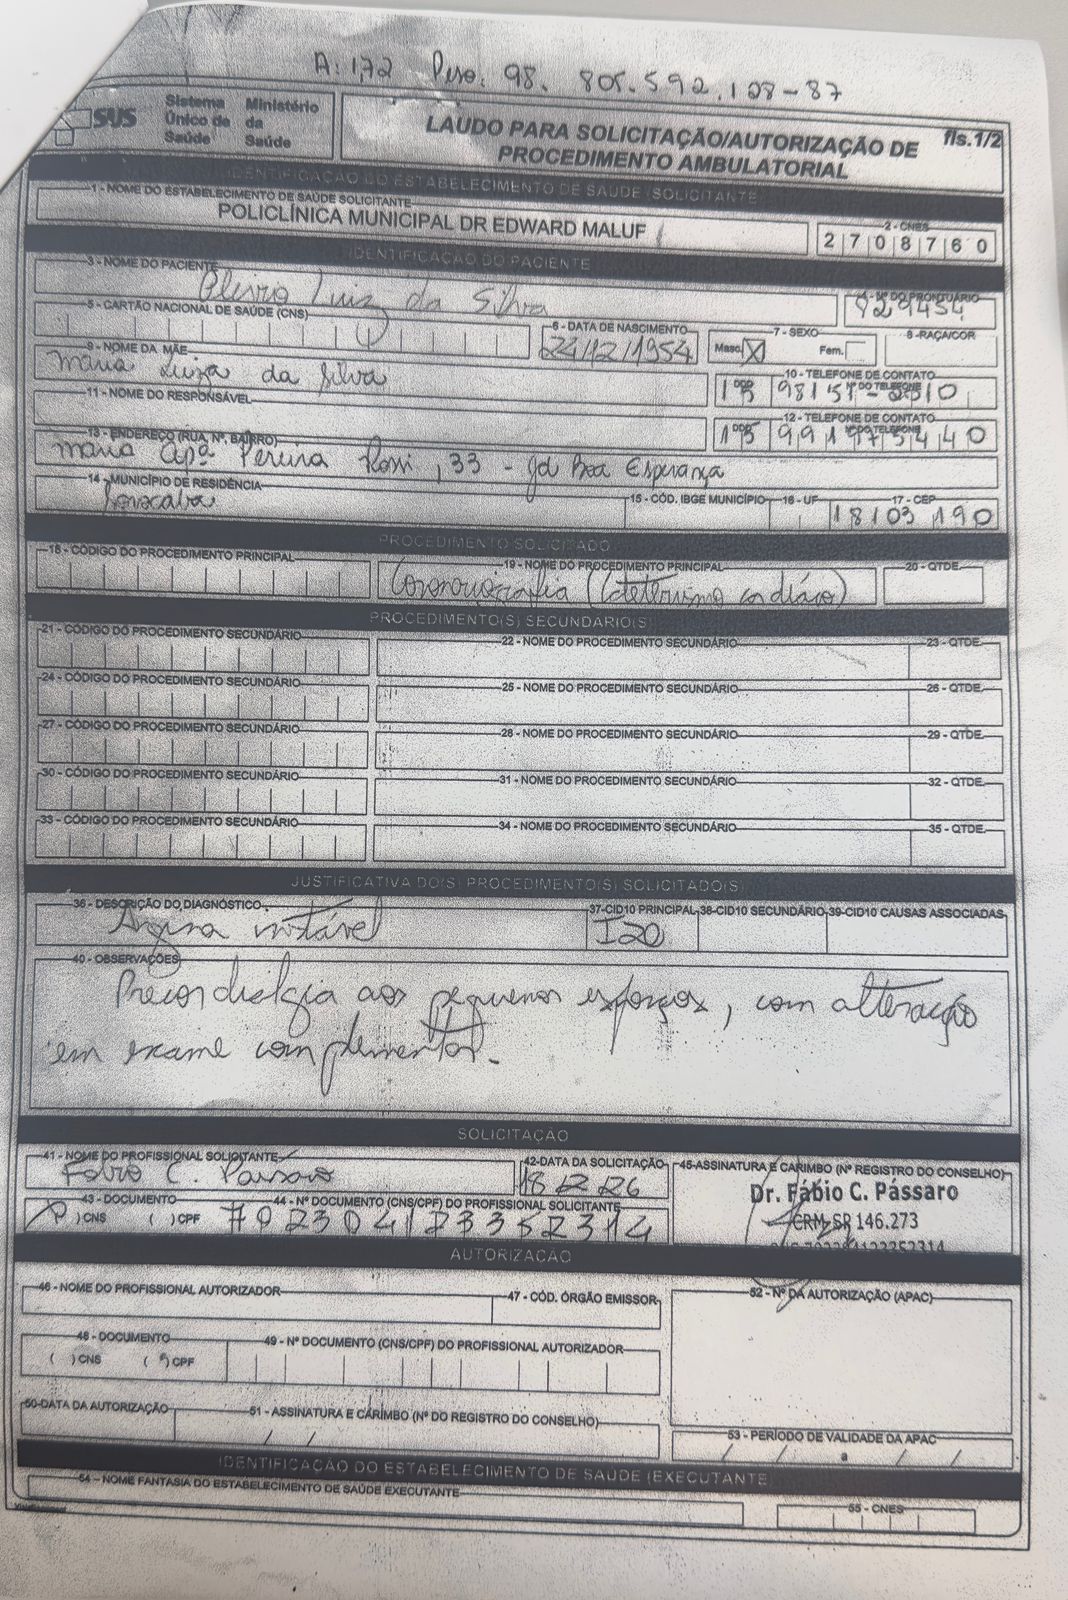 A: 1,72 Peso: 98. 805.592.128-87
SUS Sistema Único de Saúde Ministério da Saúde
LAUDO PARA SOLICITAÇÃO/AUTORIZAÇÃO DE PROCEDIMENTO AMBULATORIAL fls.1/2
IDENTIFICAÇÃO DO ESTABELECIMENTO DE SAÚDE (SOLICITANTE)
1 - NOME DO ESTABELECIMENTO DE SAÚDE SOLICITANTE
2 - CNES
POLICLÍNICA MUNICIPAL DR EDWARD MALUF
2708760
IDENTIFICAÇÃO DO PACIENTE
3 - NOME DO PACIENTE
Luiz da Silva
4 - Nº DO PRONTUÁRIO
5 - CARTÃO NACIONAL DE SAÚDE (CNS)
6 - DATA DE NASCIMENTO
24/12/1954
7 - SEXO
Masc. X Fem.
8 - RAÇA/COR
9 - NOME DA MÃE
Maria Luiza da Silva
10 - TELEFONE DE CONTATO
DDD Nº DO TELEFONE
15 98151-2510
11 - NOME DO RESPONSÁVEL
12 - TELEFONE DE CONTATO
Nº DO TELEFONE
15 991975440
13 - ENDEREÇO (RUA, Nº, BAIRRO)
Maria Apª Pereira Rossi, 33 - Jd Boa Esperança
14 - MUNICÍPIO DE RESIDÊNCIA
Sorocaba
15 - CÓD. IBGE MUNICÍPIO
16 - UF
17 - CEP
18103190
PROCEDIMENTO SOLICITADO
18 - CÓDIGO DO PROCEDIMENTO PRINCIPAL
19 - NOME DO PROCEDIMENTO PRINCIPAL
20 - QTDE.
(cateterismo cardíaco)
PROCEDIMENTO(S) SECUNDÁRIO(S)
21 - CÓDIGO DO PROCEDIMENTO SECUNDÁRIO
22 - NOME DO PROCEDIMENTO SECUNDÁRIO
23 - QTDE.
24 - CÓDIGO DO PROCEDIMENTO SECUNDÁRIO
25 - NOME DO PROCEDIMENTO SECUNDÁRIO
26 - QTDE.
27 - CÓDIGO DO PROCEDIMENTO SECUNDÁRIO
28 - NOME DO PROCEDIMENTO SECUNDÁRIO
29 - QTDE.
30 - CÓDIGO DO PROCEDIMENTO SECUNDÁRIO
31 - NOME DO PROCEDIMENTO SECUNDÁRIO
32 - QTDE.
33 - CÓDIGO DO PROCEDIMENTO SECUNDÁRIO
34 - NOME DO PROCEDIMENTO SECUNDÁRIO
35 - QTDE.
JUSTIFICATIVA DO(S) PROCEDIMENTO(S) SOLICITADO(S)
36 - DESCRIÇÃO DO DIAGNÓSTICO
37-CID10 PRINCIPAL
38-CID10 SECUNDÁRIO
39-CID10 CAUSAS ASSOCIADAS
Angina instável
I20
40 - OBSERVAÇÕES
Precordialgia aos pequenos esforços, com alteração
em exame complementar.
SOLICITAÇÃO
41 - NOME DO PROFISSIONAL SOLICITANTE
42-DATA DA SOLICITAÇÃO
45-ASSINATURA E CARIMBO (Nº REGISTRO DO CONSELHO)
Fabio C. Passaro
Dr. Fábio C. Pássaro
CRM-SP 146.273
43 - DOCUMENTO
44 - Nº DOCUMENTO (CNS/CPF) DO PROFISSIONAL SOLICITANTE
( )CNS ( )CPF 702304123352314
AUTORIZAÇÃO
46 - NOME DO PROFISSIONAL AUTORIZADOR
47 - CÓD. ÓRGÃO EMISSOR
52 - Nº DA AUTORIZAÇÃO (APAC)
48 - DOCUMENTO
49 - Nº DOCUMENTO (CNS/CPF) DO PROFISSIONAL AUTORIZADOR
( )CNS ( )CPF
50-DATA DA AUTORIZAÇÃO
51 - ASSINATURA E CARIMBO (Nº DO REGISTRO DO CONSELHO)
53 - PERÍODO DE VALIDADE DA APAC
/ / a / /
IDENTIFICAÇÃO DO ESTABELECIMENTO DE SAÚDE (EXECUTANTE
54 - NOME FANTASIA DO ESTABELECIMENTO DE SAÚDE EXECUTANTE
55 - CNES